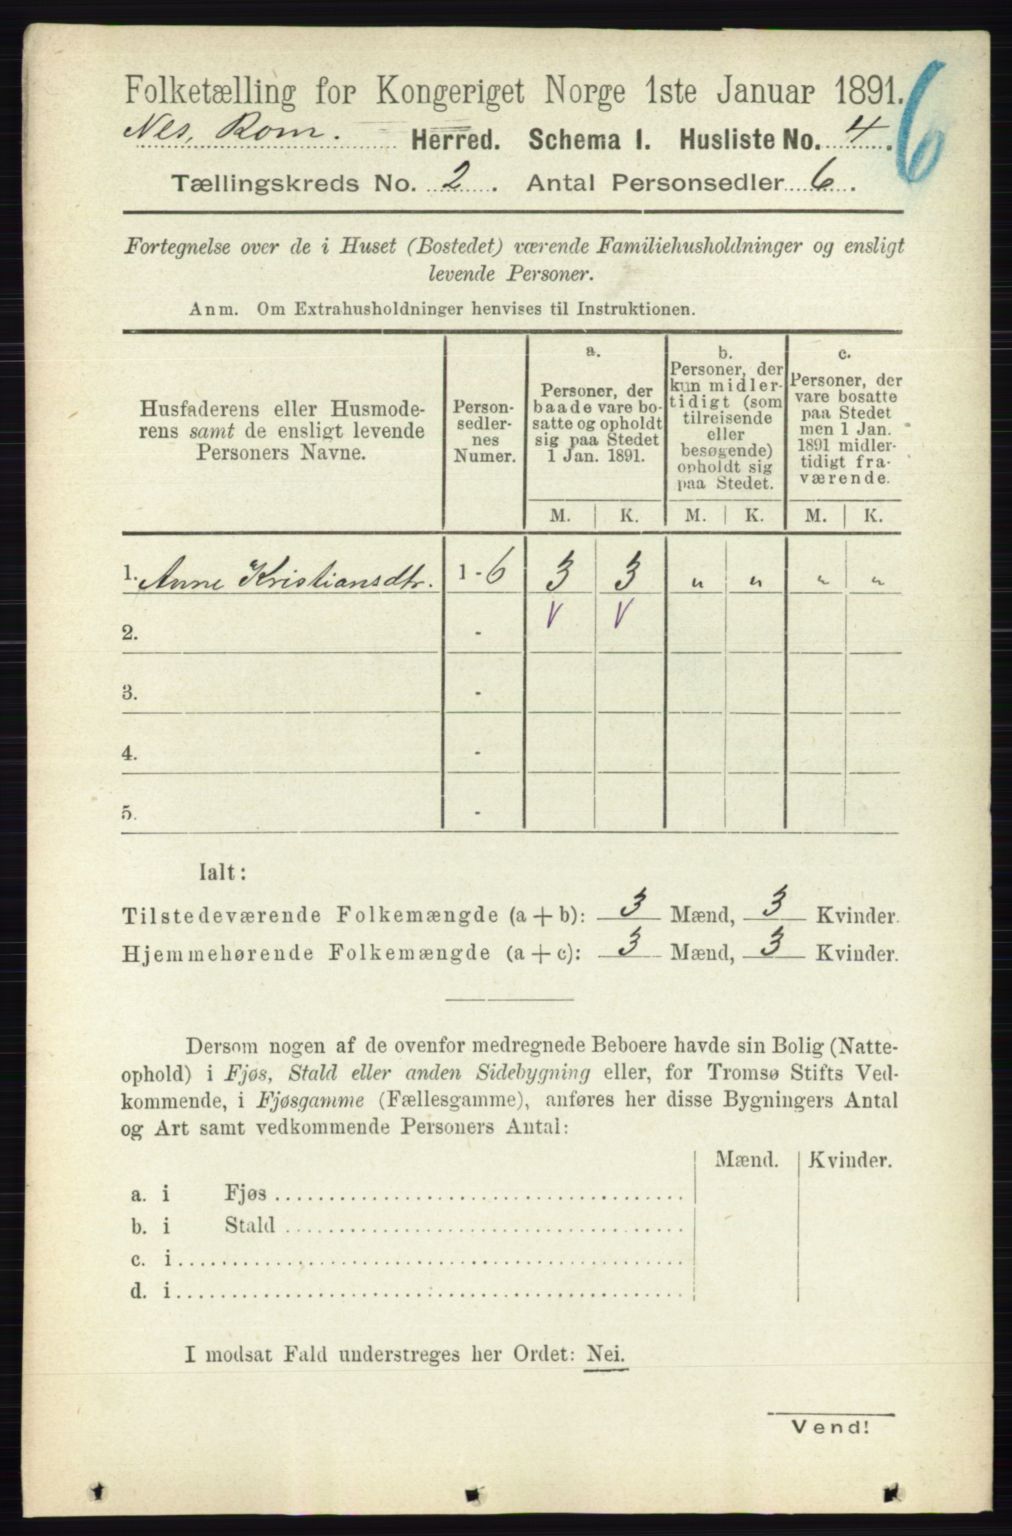 Folketælling for Kongeriget Norge 1ste Januar 1891.
6
Nes, Rom. Herred. Schema I. Husliste No. 4.
Tællingskreds No. 2. Antal Personsedler 6.
Fortegnelse over de i Huset (Bostedet) værende Familiehusholdninger og ensligt
levende Personer.
Anm. Om Extrahusholdninger henvises til Instruktionen.
Husfaderens eller Husmode-
rens samt de ensligt levende
Personers Navne.
Person-
sedler-
nes
Numer.
a.
Personer, der
baade vare bo-
satte og opholdt
sig paa Stedet
1 Jan. 1891.
b.
Personer, der
kun midler-
tidigt (som
tilreisende
eller
besøgende)
opholdt sig
paa Stedet.
c.
Personer, der
vare bosatte
paa Stedet
men 1 Jan.
1891 midler-
tidigt fra-
værende.
M. K. M. K. M. K.
1. Anne Kristiansdtr. 1 - 6 3 3 " " " "
2. - V V
3. -
4. -
5. -
Ialt:
Tilstedeværende Folkemængde (a + b): 3 Mænd, 3 Kvinder.
Hjemmehørende Folkemængde (a + c): 3 Mænd, 3 Kvinder.
Dersom nogen af de ovenfor medregnede Beboere havde sin Bolig (Natte-
ophold) i Fjøs, Stald eller anden Sidebygning eller, for Tromsø Stifts Ved-
kommende, i Fjøsgamme (Fællesgamme), anføres her disse Bygningers Antal
og Art samt vedkommende Personers Antal:
Mænd. Kvinder.
a. i Fjøs
b. i Stald
c. i
d. i
I modsat Fald understreges her Ordet: Nei.
Vend!